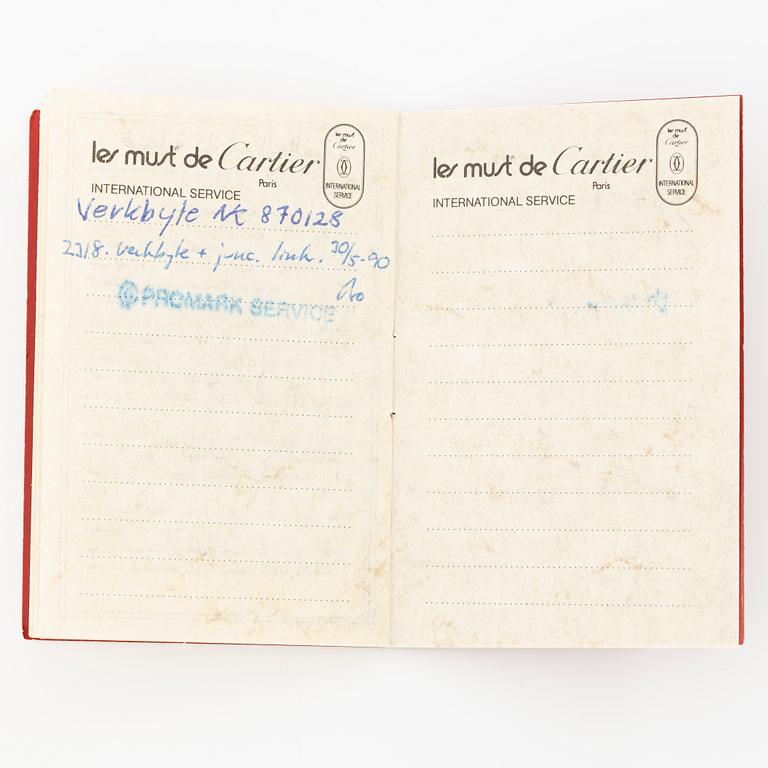 les must de Cartier
Paris
INTERNATIONAL SERVICE
les must de Cartier
INTERNATIONAL SERVICE
Verkbyte NK 870128
2318. verkbyte + junc. link. 30/5-90
PROMARK SERVICE
les must de Cartier
Paris
INTERNATIONAL SERVICE
les must de Cartier
INTERNATIONAL SERVICE